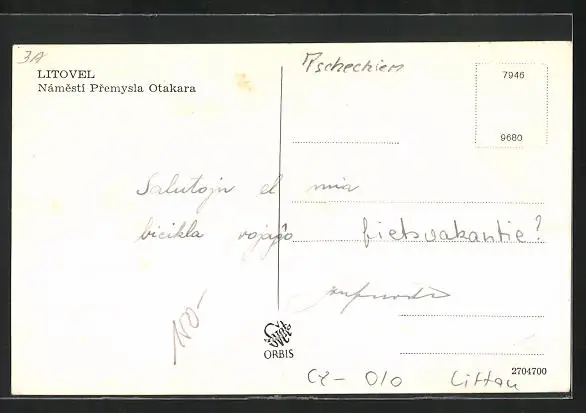 3A
LITOVEL
Náměstí Přemysla Otakara
Tschechien
7946
9680
Salutojn el mia
bicikla vojaĝo fietsvakantie?
180,-
ORBIS
2704700
CZ- OlO Littau